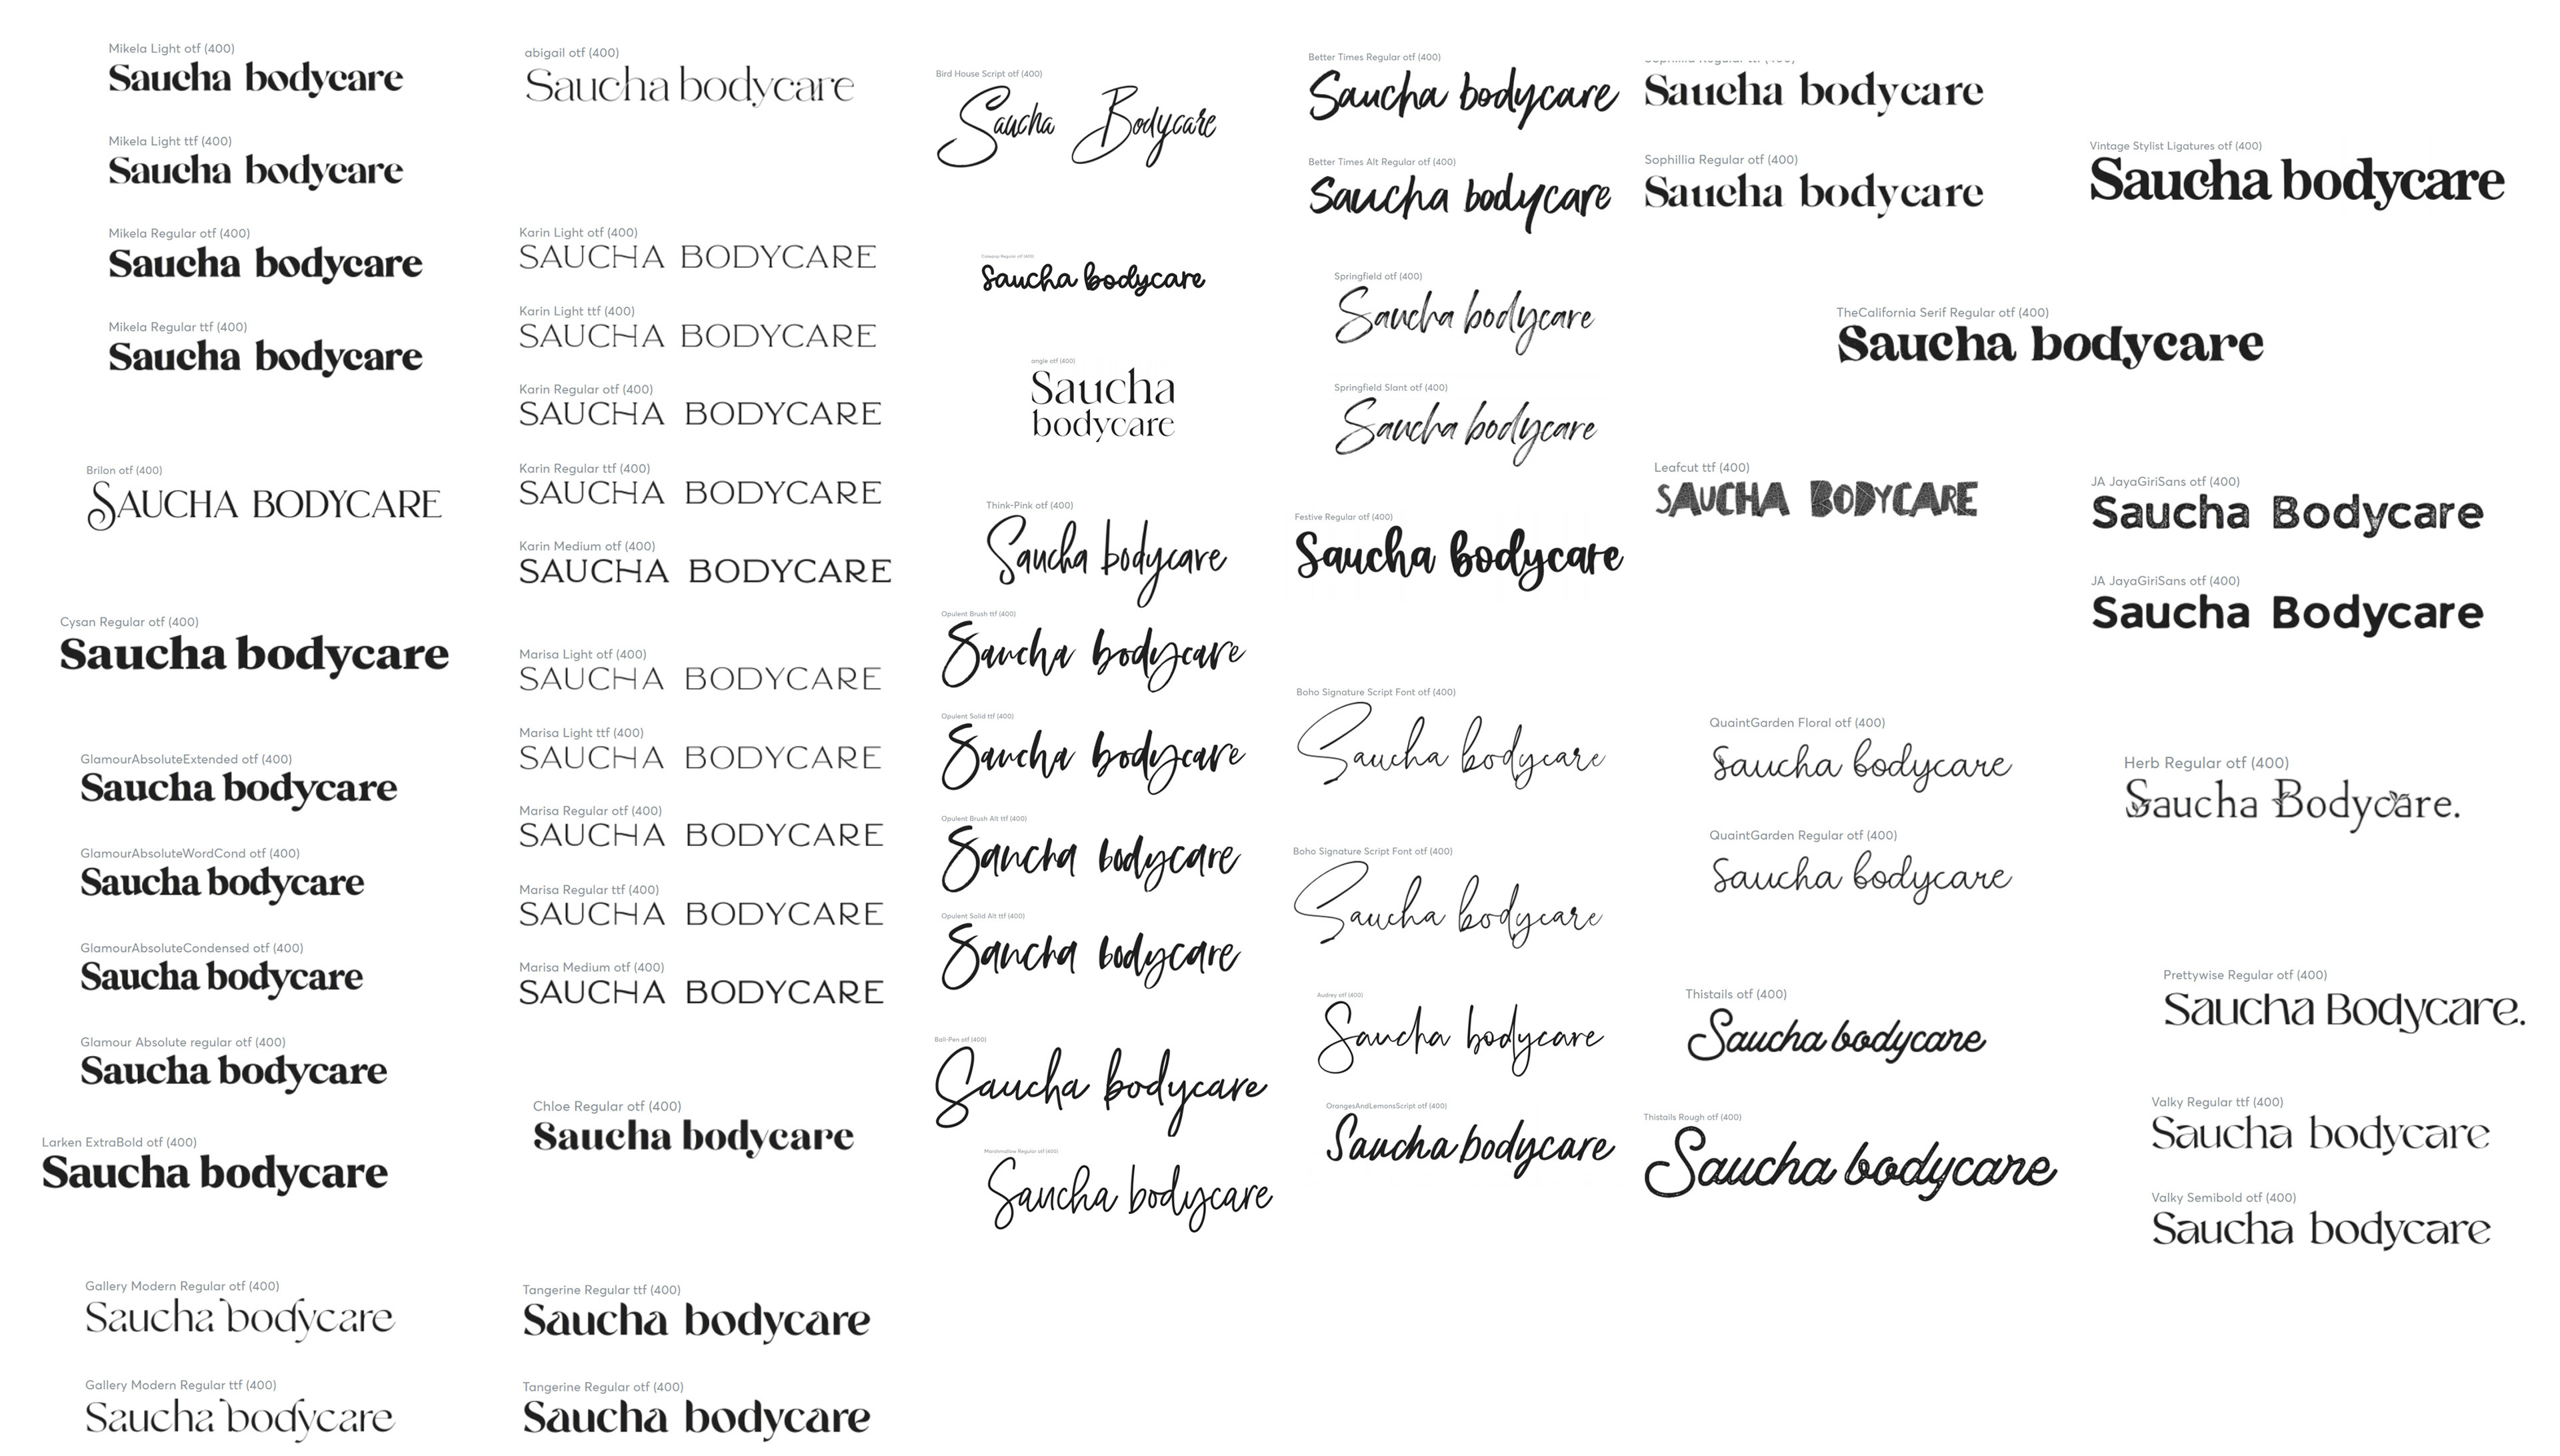 Mikela Light otf (400)
Saucha bodycare
Mikela Light ttf (400)
Saucha bodycare
Mikela Regular otf (400)
Saucha bodycare
Mikela Regular ttf (400)
Saucha bodycare
Brilon otf (400)
SAUCHA BODYCARE
Cysan Regular otf (400)
Saucha bodycare
GlamourAbsoluteExtended otf (400)
Saucha bodycare
GlamourAbsoluteWordCond otf (400)
Saucha bodycare
GlamourAbsoluteCondensed otf (400)
Saucha bodycare
Glamour Absolute regular otf (400)
Saucha bodycare
Larken ExtraBold otf (400)
Saucha bodycare
Gallery Modern Regular otf (400)
Saucha bodycare
Gallery Modern Regular ttf (400)
Saucha bodycare
abigail otf (400)
Saucha bodycare
Karin Light otf (400)
SAUCHA BODYCARE
Karin Light ttf (400)
SAUCHA BODYCARE
Karin Regular otf (400)
SAUCHA BODYCARE
Karin Regular ttf (400)
SAUCHA BODYCARE
Karin Medium otf (400)
SAUCHA BODYCARE
Marisa Light otf (400)
SAUCHA BODYCARE
Marisa Light ttf (400)
SAUCHA BODYCARE
Marisa Regular otf (400)
SAUCHA BODYCARE
Marisa Regular ttf (400)
SAUCHA BODYCARE
Marisa Medium otf (400)
SAUCHA BODYCARE
Chloe Regular otf (400)
Saucha bodycare
Tangerine Regular ttf (400)
Saucha bodycare
Tangerine Regular otf (400)
Saucha bodycare
Bird House Script otf (400)
Saucha Bodycare
Regular otf (400)
Saucha bodycare
angle otf (400)
Saucha
bodycare
Think-Pink otf (400)
Saucha bodycare
Opulent Brush ttf (400)
Saucha bodycare
Opulent Solid ttf (400)
Saucha bodycare
Opulent Brush Alt ttf (400)
Saucha bodycare
Opulent Solid Alt ttf (400)
Saucha bodycare
Ball-Pen otf (400)
Saucha bodycare
Marshmallow Regular otf (400)
Saucha bodycare
Better Times Regular otf (400)
Saucha bodycare
Better Times Alt Regular otf (400)
Saucha bodycare
Springfield otf (400)
Saucha bodycare
Springfield Slant otf (400)
Saucha bodycare
Festive Regular otf (400)
Saucha bodycare
Boho Signature Script Font otf (400)
Saucha bodycare
Boho Signature Script Font otf (400)
Saucha bodycare
Audrey otf (400)
Saucha bodycare
OrangesAndLemonsScript otf (400)
Saucha bodycare
Saucha bodycare
Sophillia Regular otf (400)
Saucha bodycare
TheCalifornia Serif Regular otf (400)
Saucha bodycare
Leafcut ttf (400)
SAUCHA BODYCARE
QuaintGarden Floral otf (400)
Saucha bodycare
QuaintGarden Regular otf (400)
Saucha bodycare
Thistails otf (400)
Saucha bodycare
Thistails Rough otf (400)
Saucha bodycare
Vintage Stylist Ligatures otf (400)
Saucha bodycare
JA JayaGiriSans otf (400)
Saucha Bodycare
JA JayaGiriSans otf (400)
Saucha Bodycare
Herb Regular otf (400)
Saucha Bodycare.
Prettywise Regular otf (400)
Saucha Bodycare.
Valky Regular ttf (400)
Saucha bodycare
Valky Semibold otf (400)
Saucha bodycare